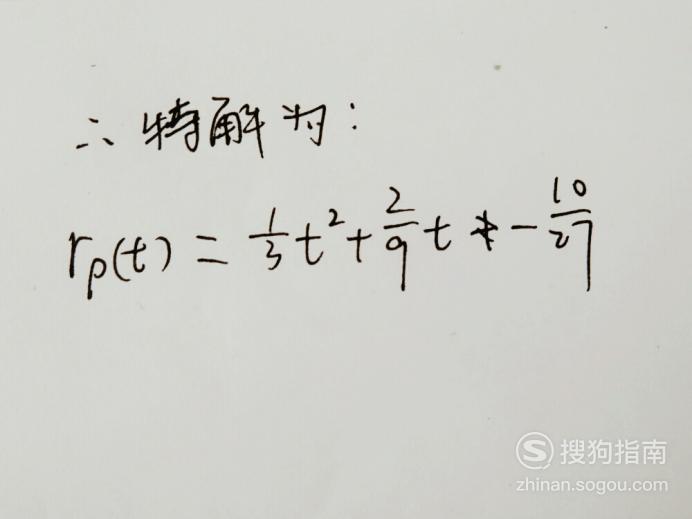 ∴特解为:
rp(t) = 1/3 t² + 2/9 t - 10/27
搜狗指南
zhinan.sogou.com